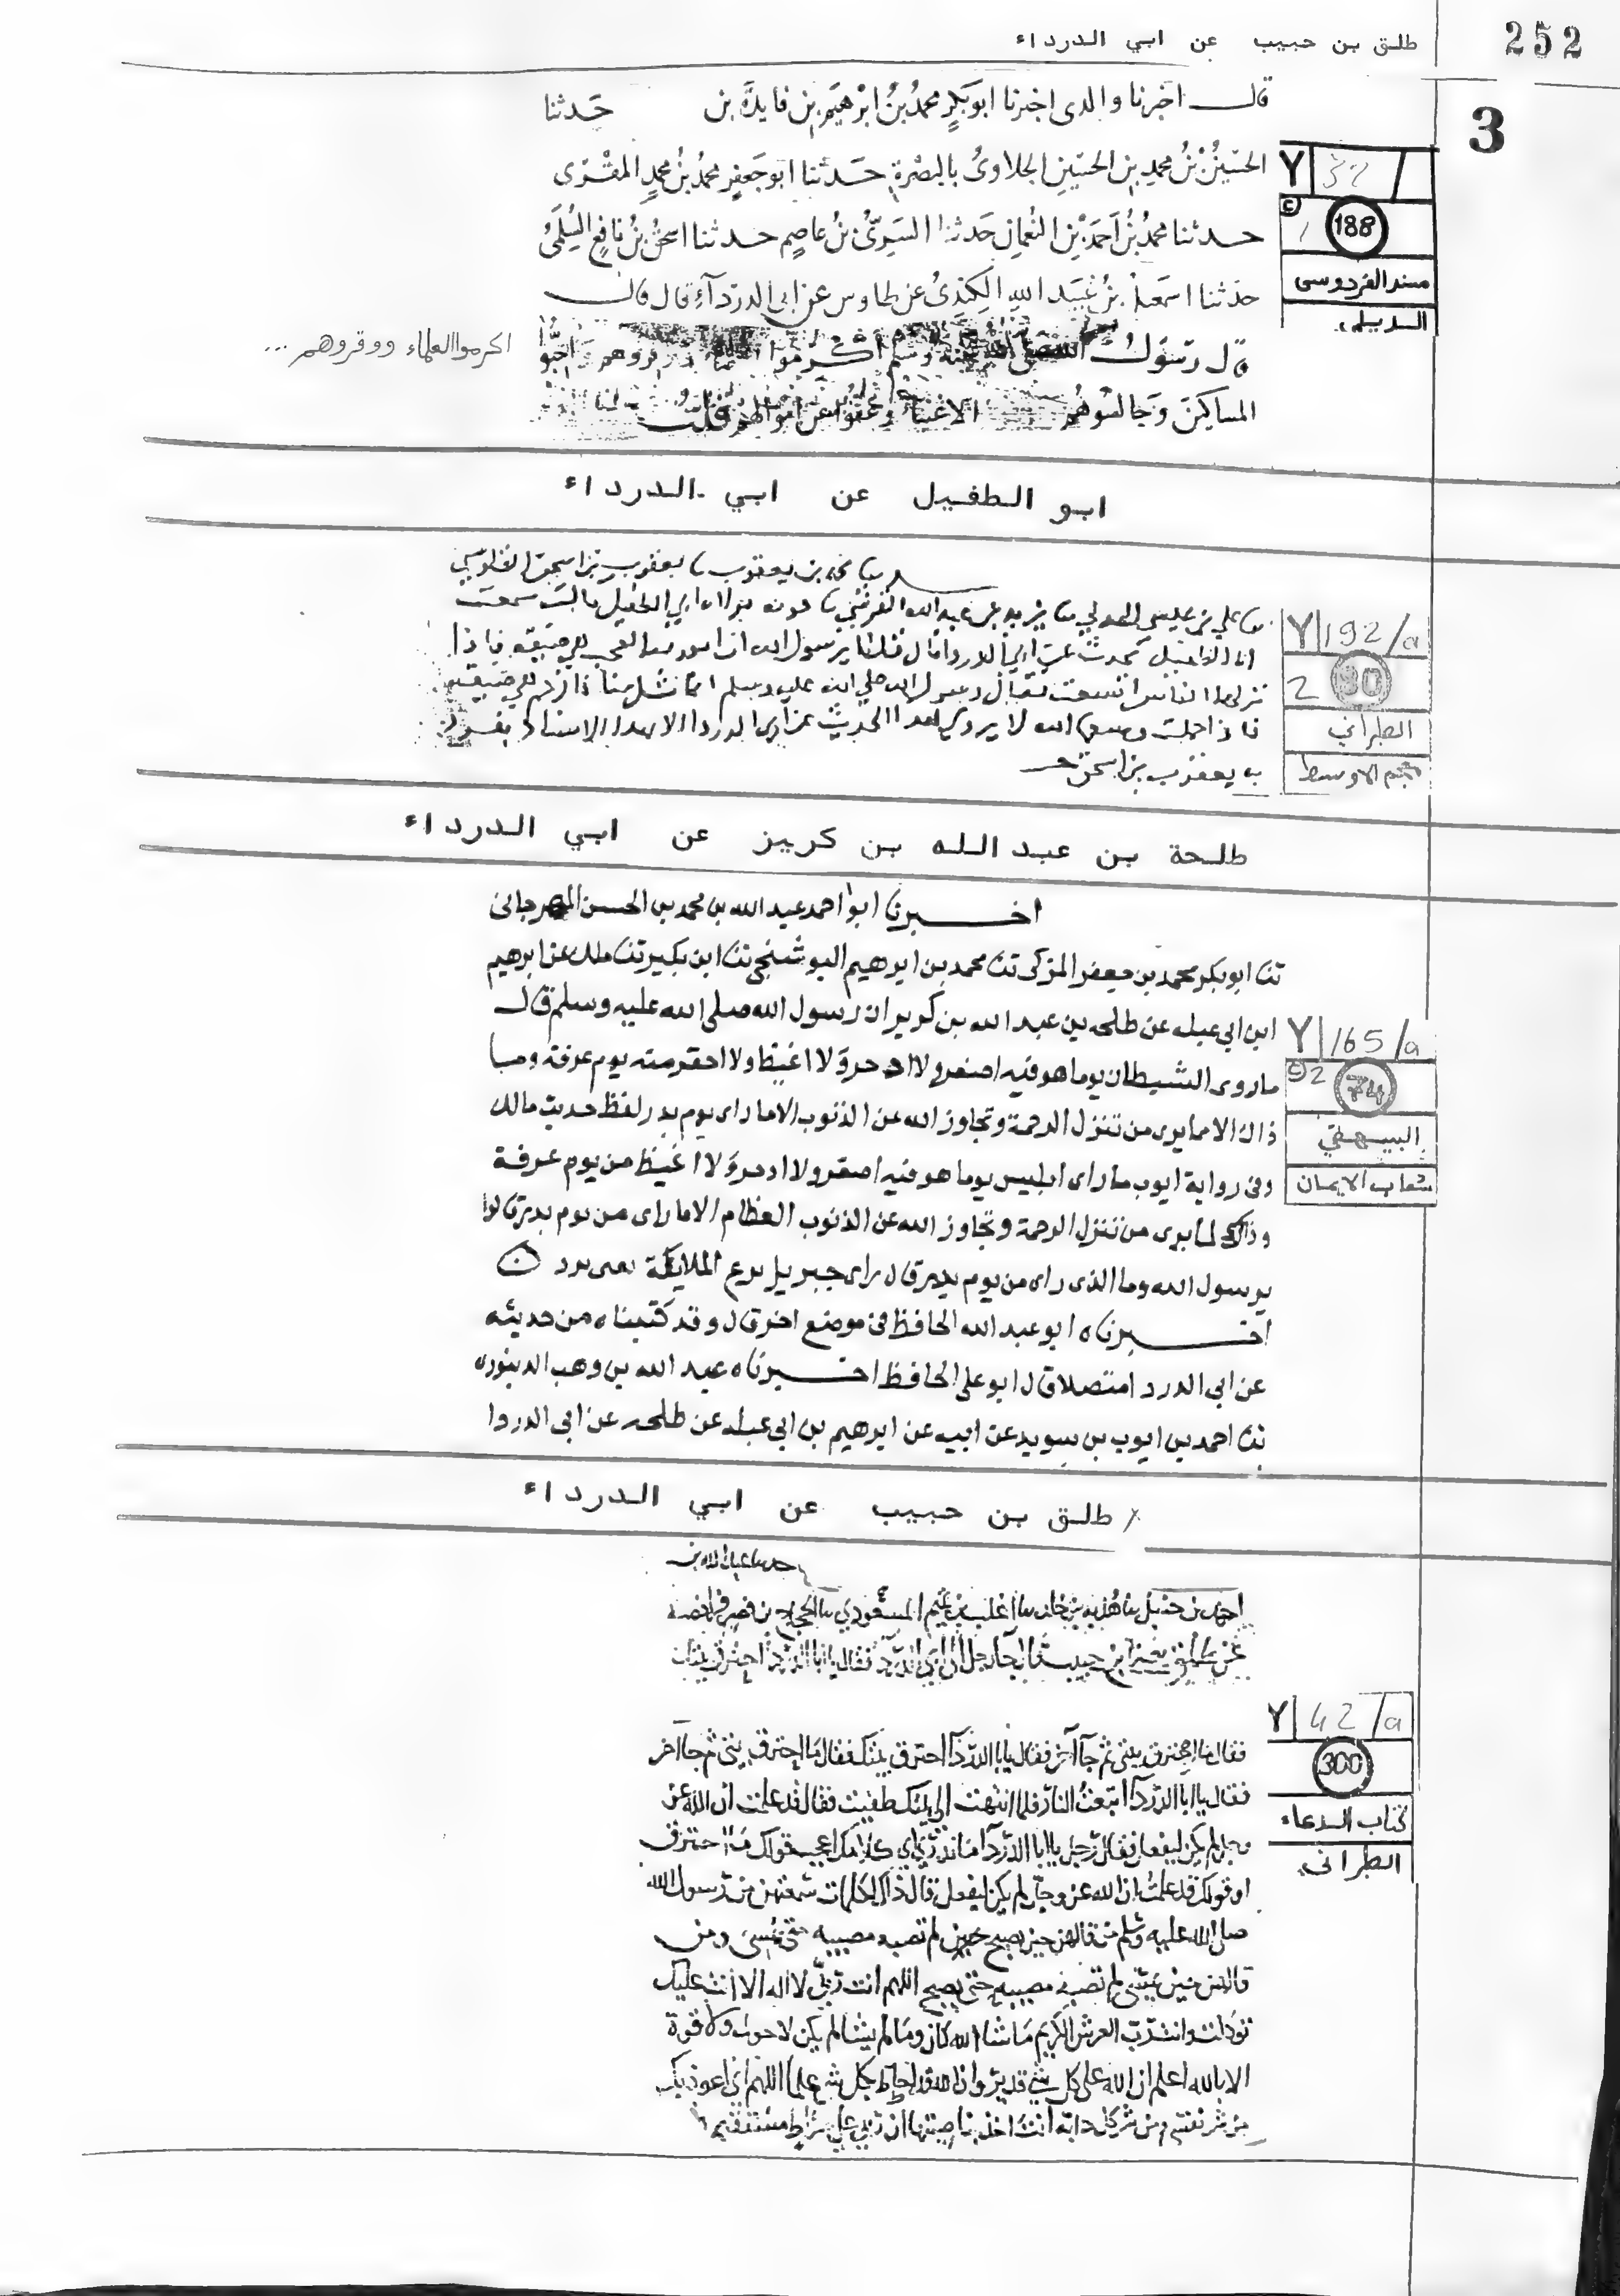 252
طلق بن حبيب عن ابي الدرداء
3
قال اخبرنا والدى اخبرنا ابو بكر محمد بن ابرهيم بن فايده بن حدثنا
الحسين بن محمد بن الحسين الجلاوى بالبصرة حدثنا ابو جعفر محمد بن محمد المقرى
حدثنا محمد بن احمد بن النعمان حدثنا السرى بن عاصم حدثنا اسحق بن نافع السلمى
حدثنا اسمعيل بن عبيد الله الكندى عن طاوس عن ابى الدردآء قال قال
قال رسول الله صلى الله عليه وسلم اكرموا العلماء ووقروهم واحبوا
المساكين وجالسوهم الاغنياء وعفوا عن اموالهم قلت
اكرموا العلماء ووقروهم ...
Y 32 /
188
مسند الفردوسى
الديلمى
ابو الطفيل عن ابي الدرداء
محمد بن يعقوب نا يعقوب بن اسحق القلوسي
نا علي بن عيسى نا يزيد بن عبد الله القرشي نا ابي الطفيل قالت سمعت
ابا الطفيل يحدث عن ابي الدردا قال قلنا يرسول الله
فقال رسول الله صلى الله عليه وسلم
لا يروى هذا الحديث عن ابى الدردا الا بهذا الاسناد تفرد
به يعقوب بن اسحق
Y 192 /a
2
90
الطبراني
معجم الاوسط
طلحة بن عبد الله بن كريز عن ابي الدرداء
اخبرنا ابو احمد عبد الله بن محمد بن الحسن المهرجانى
ثنا ابو بكر محمد بن جعفر المزكى ثنا محمد بن ابرهيم البوشنجى ثنا ابن بكير ثنا ملك عن ابرهيم
ابن ابى عبله عن طلحه بن عبد الله بن كريز ان رسول الله صلى الله عليه وسلم قال
ماروى الشيطان يوما هو فيه اصغر ولا ادحر ولا اغيظ ولا احقر منه يوم عرفة وما
ذاك الا مما يرى من تنزل الرحمة وتجاوز الله عن الذنوب الا ما راى يوم بدر لفظ حديث مالك
وفى رواية ايوب ما راى ابليس يوما هو فيه اصغر ولا ادحر ولا اغيظ من يوم عرفة
وذلك لما يرى من تنزل الرحمة وتجاوز الله عن الذنوب العظام الا ما راى من يوم بدر قالوا
يرسول الله وما الذى راى من يوم بدر قال راى جبريل يزع الملايكة
اخبرناه ابو عبد الله الحافظ فى موضع اخر قال وقد كتبناه من حديثه
عن ابى الدردا متصلا قال ابو على الحافظ اخبرناه عبد الله بن وهب الدينورى
ثنا احمد بن ايوب بن سويد عن ابيه عن ابرهيم بن ابى عبله عن طلحه عن ابى الدردا
Y 165 /a
2
74
البيهقي
شعاب الايمان
طلق بن حبيب عن ابي الدرداء
حدثنا عبد الله بن
احمد بن حنبل ثنا هدبه بن خالد ثنا اغلب بن تميم المسعودي ثنا الحجاج بن فرافصة
عن طلق يعنى ابن حبيب قال جآء رجل الى ابي الدردآ فقال يا ابا الدردآ احترق بيتك
فقال ما احترق بيتى ثم جآ آخر فقال يابا الدردآ احترق بيتك فقال ما احترق بيتى ثم جا آخر
فقال يا ابا الدردآ اتبعت النار فلما انتهت الى بيتك طفيت فقال قد علمت ان الله عز
وجل لم يكن ليفعل فقال رجل يا ابا الدردآ ما ندري اي كلامك اعجب قولك ما احترق
او قولك قد علمت ان الله عز وجل لم يكن ليفعل قال ذاك لكلمات سمعتهن من رسول الله
صلى الله عليه وسلم من قالهن حين يصبح لم تصبه مصيبه حتى يمسى ومن
قالهن حين يمسى لم تصبه مصيبه حتى يصبح اللهم انت ربي لا اله الا انت عليك
توكلت وانت رب العرش الكريم ما شا الله كان وما لم يشا لم يكن لا حول ولا قوة
الا بالله اعلم ان الله على كل شي قدير وان الله قد احاط بكل شي علما اللهم اني اعوذ بك
من شر نفسي ومن شر كل دابه انت اخذ بناصيتها ان ربي على صراط مستقيم
Y 42 /a
300
كتاب الدعاء
الطبرانى